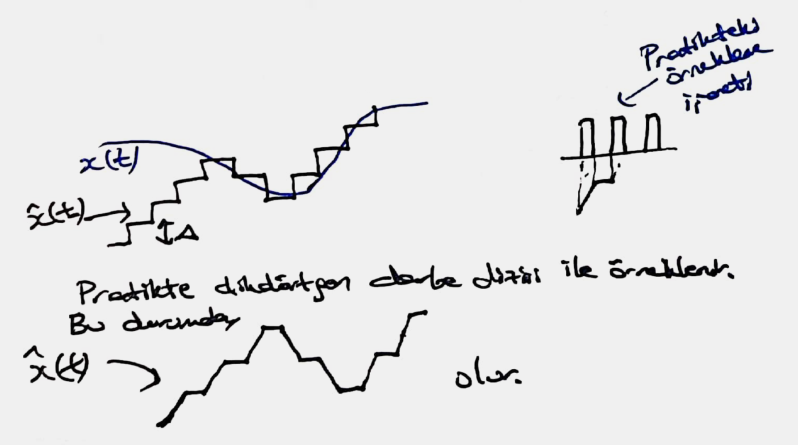 Pratikteki
örnekleme
işareti
x(t)
x̂(t)
Δ
Pratikte dikdörtgen darbe dizisi ile örneklenir.
Bu durumda,
x̂(t)
olur.